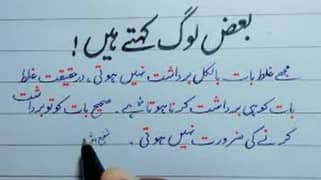 بعض لوگ کہتے ہیں!
مجھے غلط بات بالکل برداشت نہیں ہوتی، درحقیقت غلط
بات کو ہی برداشت کرنا ہوتا ہے۔ صحیح بات کو تو برداشت
کرنے کی ضرورت نہیں ہوتی۔